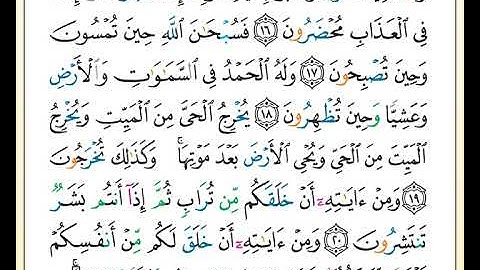 فِي ٱلْعَذَابِ مُحْضَرُونَ ١٦ فَسُبْحَٰنَ ٱللَّهِ حِينَ تُمْسُونَ
وَحِينَ تُصْبِحُونَ ١٧ وَلَهُ ٱلْحَمْدُ فِي ٱلسَّمَٰوَٰتِ وَٱلْأَرْضِ
وَعَشِيًّا وَحِينَ تُظْهِرُونَ ١٨ يُخْرِجُ ٱلْحَيَّ مِنَ ٱلْمَيِّتِ وَيُخْرِجُ
ٱلْمَيِّتَ مِنَ ٱلْحَيِّ وَيُحْيِ ٱلْأَرْضَ بَعْدَ مَوْتِهَا ۚ وَكَذَٰلِكَ تُخْرَجُونَ
١٩ وَمِنْ ءَايَٰتِهِۦٓ أَنْ خَلَقَكُم مِّن تُرَابٍ ثُمَّ إِذَآ أَنتُم بَشَرٌ
تَنتَشِرُونَ ٢٠ وَمِنْ ءَايَٰتِهِۦٓ أَنْ خَلَقَ لَكُم مِّنْ أَنفُسِكُمْ